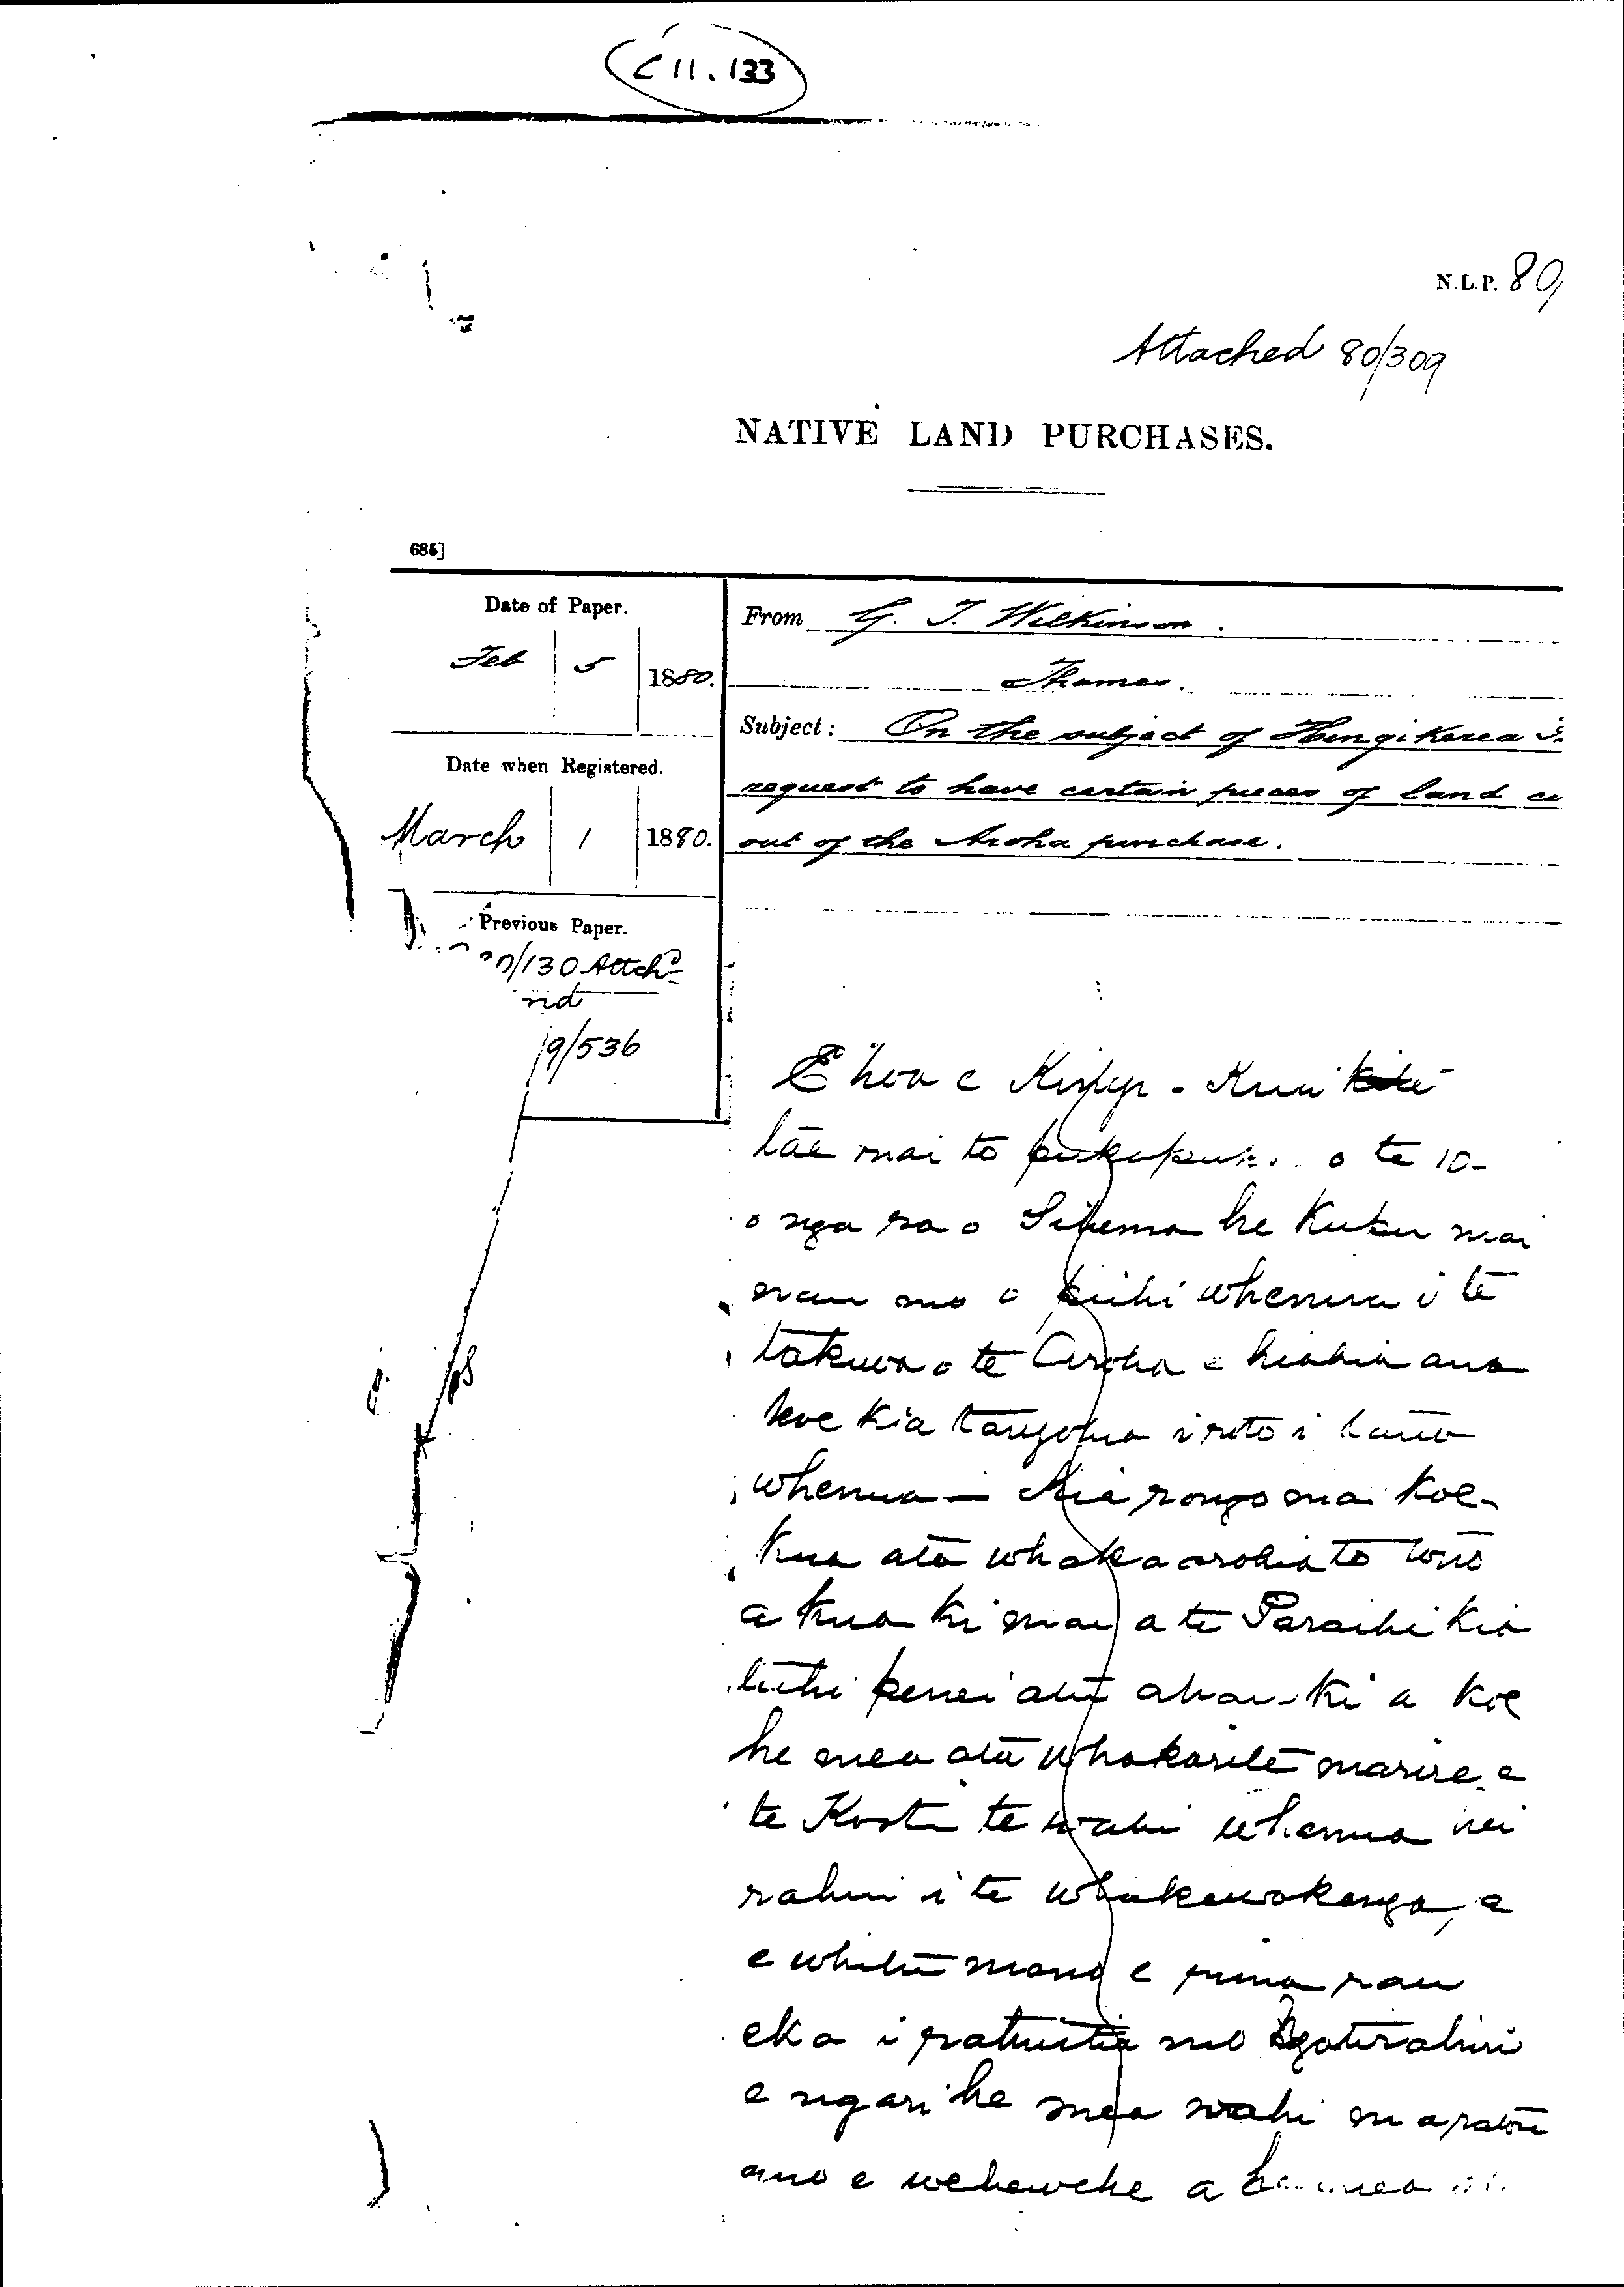 C 11.133
N.L.P. 80
Attached 80/309
NATIVE LAND PURCHASES.
685]
Date of Paper.
Feb 5 1880.
From G. T. Wilkinson.
Thames.
Subject: On the subject of
request to have certain pieces of land
out of the Aroha purchase.
Date when Registered.
March 1 1880.
Previous Paper.
/130 Attchd
9/536
E hoa e Kua
tae mai to o te 10
o nga ra o he mai
nau mo o whenua i te
takiwa o te Aroha e hiahia ana
koe kia tangohia i roto i taua
whenua – Kia rongo mai koe
kua ata whakaarohia to tono
a kua ki mai a te Paraihi kia
tuhi penei atu ahau ki a koe
he mea ata whakarite marire e
te Kooti te wahi whenua hei
rahui i te whakawakanga, a
e whitu mano e rima rau
eka i rahuitia mo Ngatirahiri
e ngari he mea wahi ma ratou
ano e wehewehe a